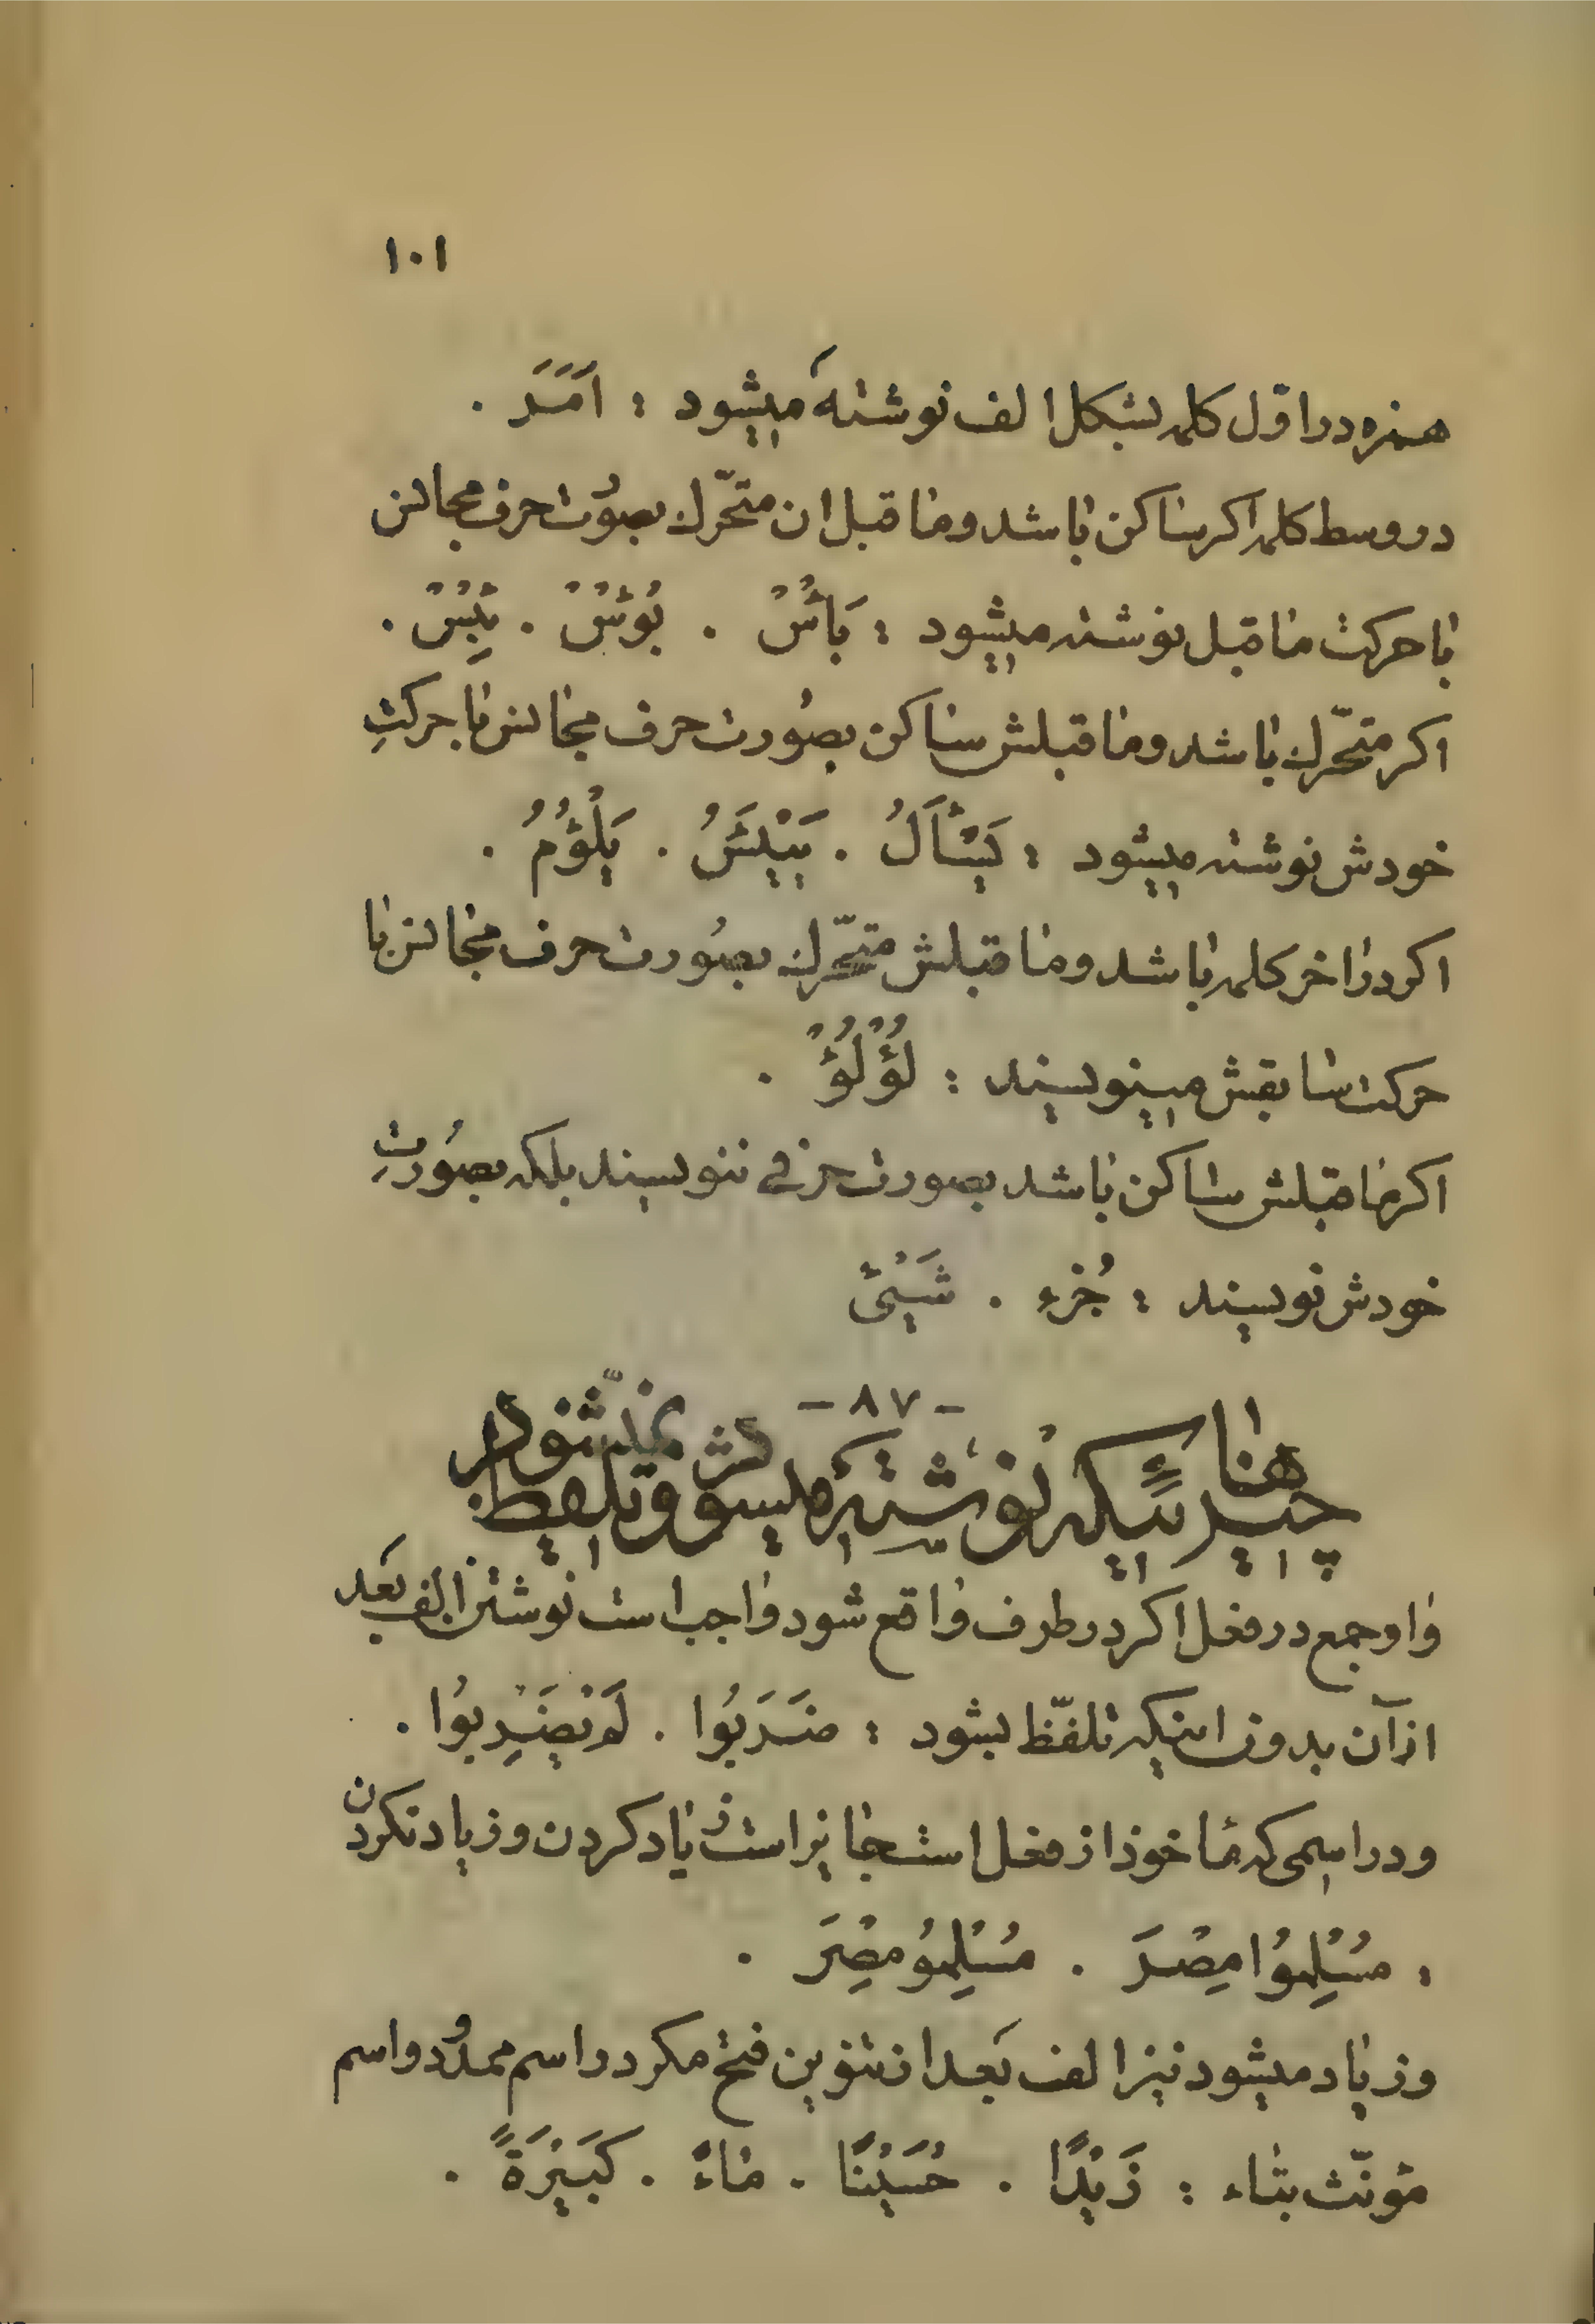 ١٠١
همزه در اوّل کلمه بشکل الف نوشته میشود : اَمَرَ .
در وسط کلمه اکر ساکن باشد و ما قبل ان متحّرك بصوُرت حرف مجانس
با حرکت ما قبل نوشته میشود : بَأْسٌ . بُؤْسٌ . بِئْسٌ .
اکر متحّرك باشد و ما قبلش ساکن بصوُرت حرف مجانس با حرکتِ
خودش نوشته میشود : یَسْأَلُ . یَیْئَسُ . یَلْؤُمُ .
اکر در اخر کلمه باشد و ما قبلش متحّرك بصوُرت حرف مجانس با
حرکت سابقش مینویسند : لُؤْلُؤٌ .
اکر ما قبلش ساکن باشد بصورت حرفے ننویسند بلکه بصوُرتِ
خودش نویسند : جُزء . شَیْئ
- ٨٧ -
چیزهائیکه نوشته میشود و تلفظ نمیشود
واو جمع در فعل اکر در طرف واقع شود واجب است نوشتن الف بَعد
از آن بدون اینکه تلفّظ بشود : ضَرَبُوا . لَمْ یَضْرِبوُا .
و در اسمی که مأخوذ از فعل است جایز است زیاد کردن و زیاد نکردن
: مُسْلِموُا مِصْرَ . مُسْلِموُ مِصْرَ .
و زیاد میشود نیز الف بَعد از تنوین فتح مکر در اسم ممدُود و اسم
مؤنّث بتاء : زَیْدًا . حُسَیْنًا . ماءً . کَبیٖرَةً .